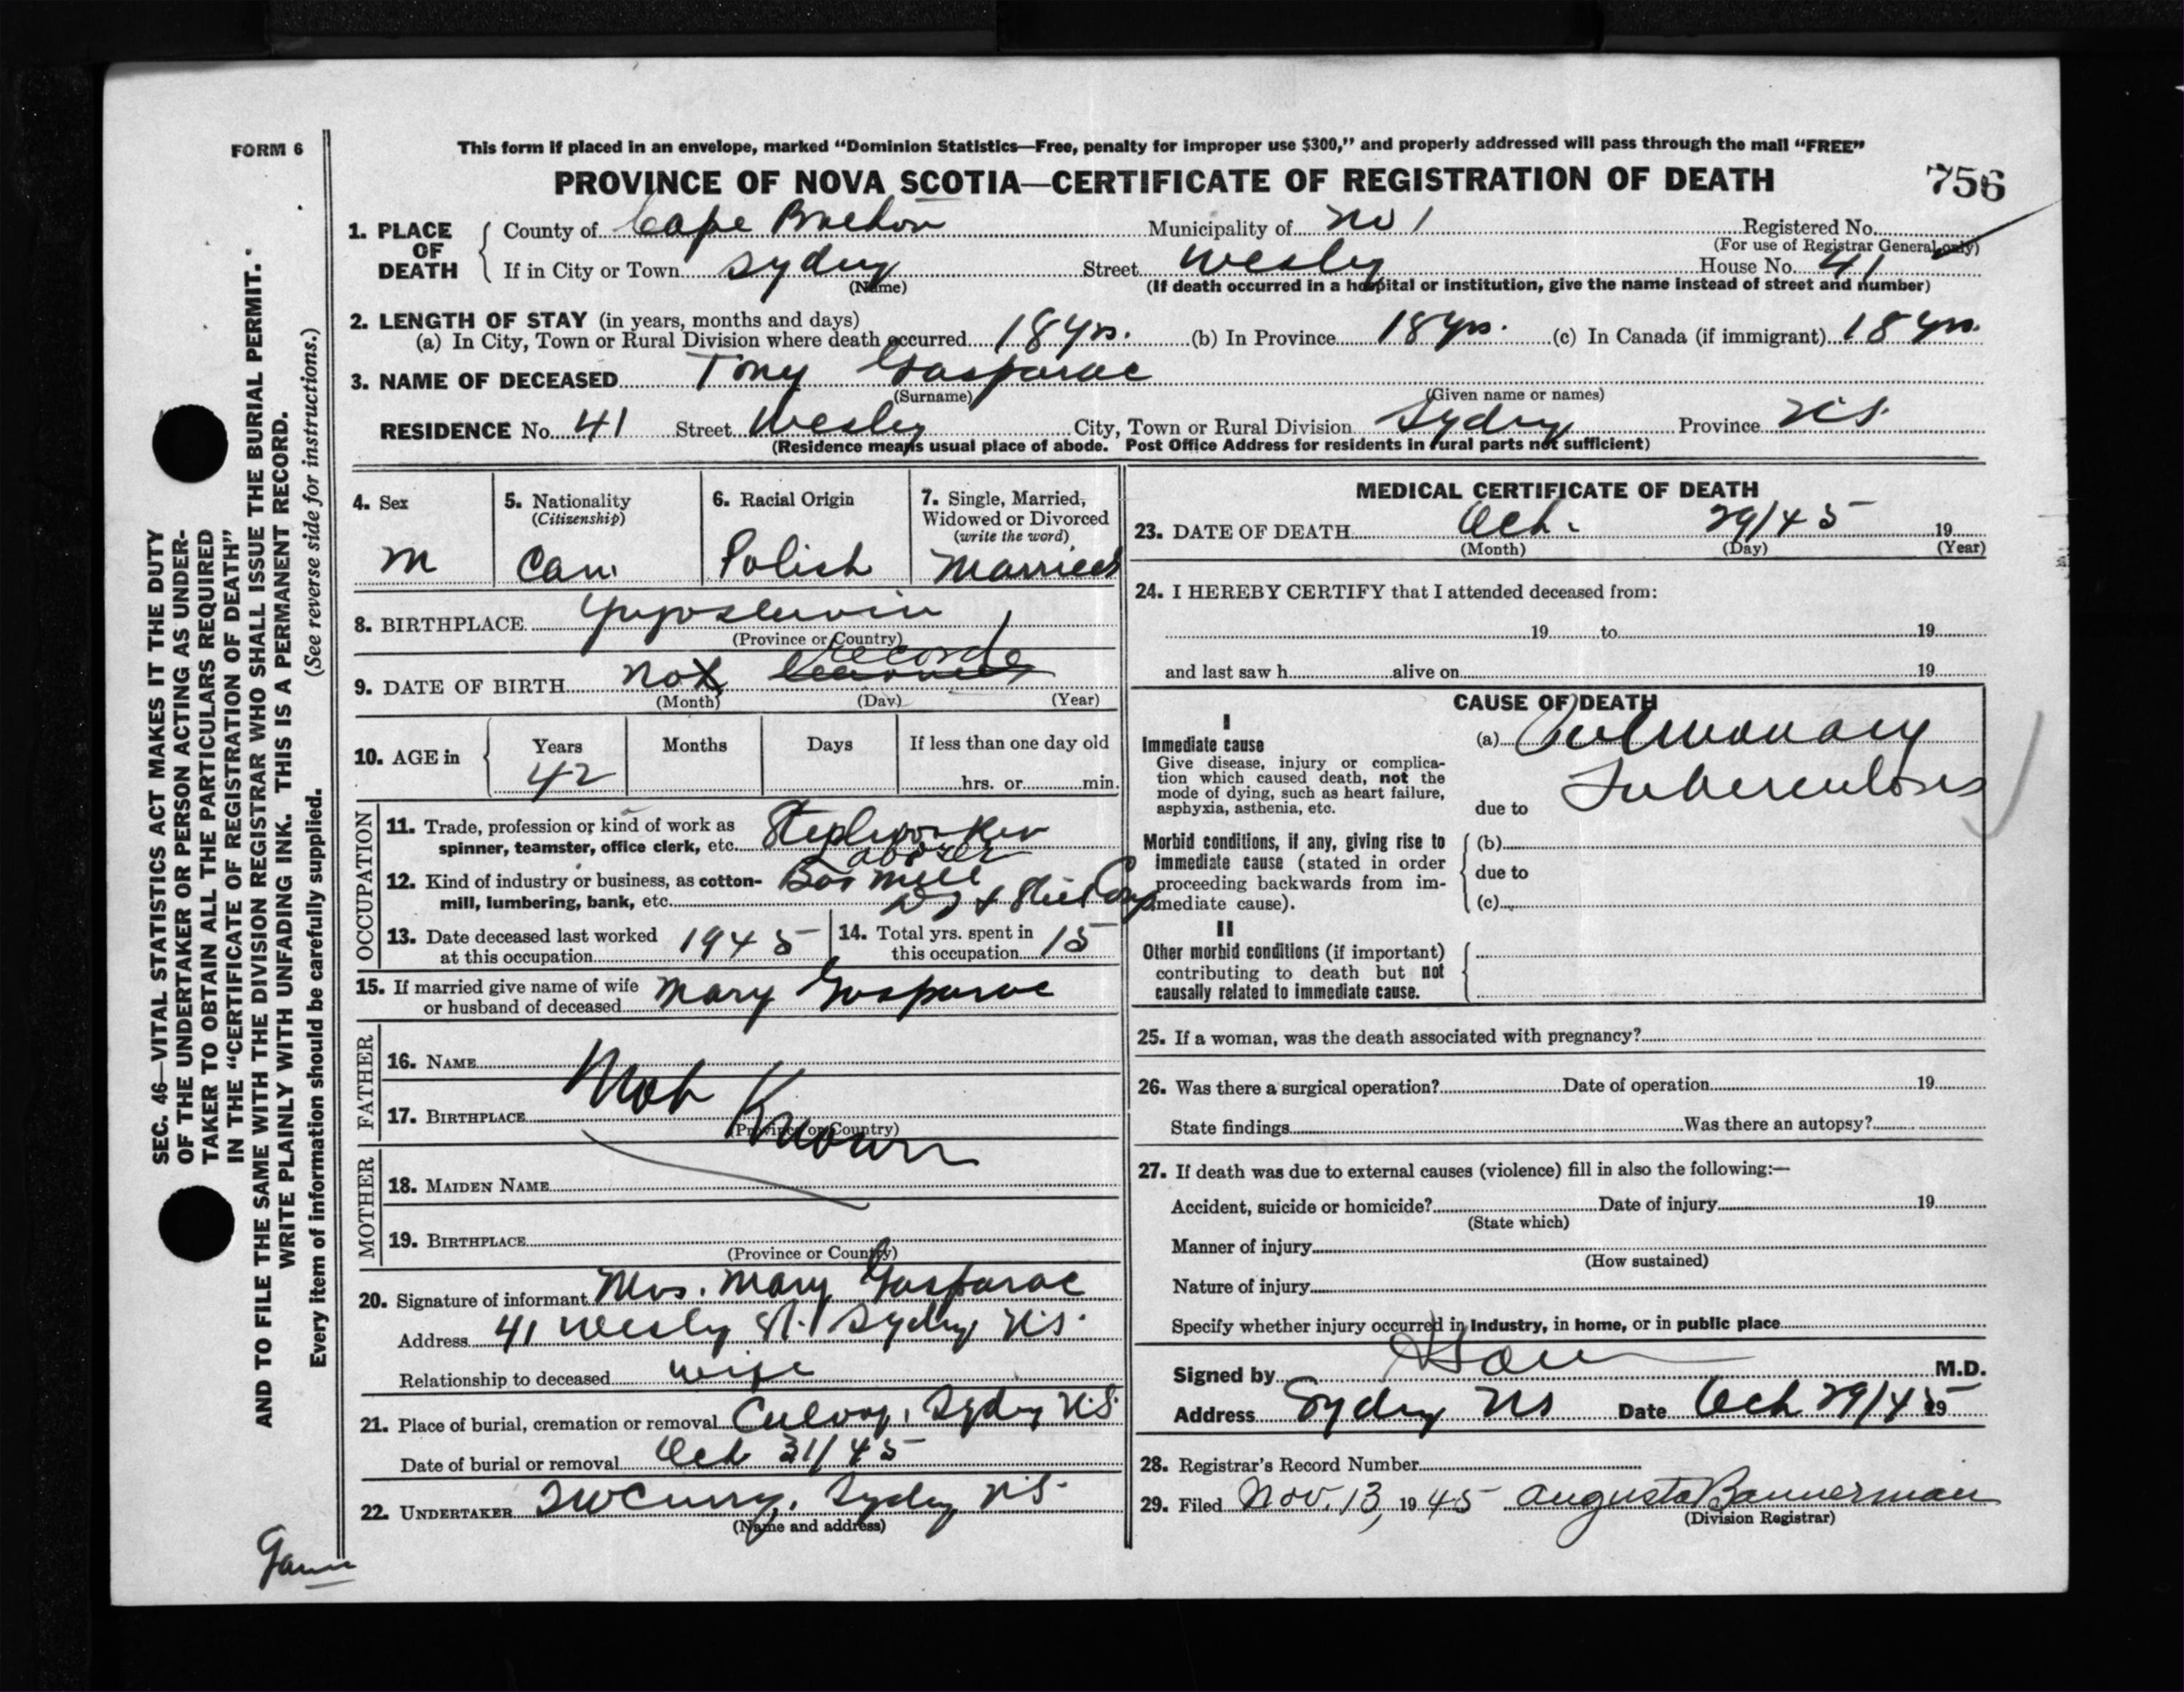 FORM 6
This form if placed in an envelope, marked “Dominion Statistics—Free, penalty for improper use $300,” and properly addressed will pass through the mail “FREE”
PROVINCE OF NOVA SCOTIA—CERTIFICATE OF REGISTRATION OF DEATH
756
1. PLACE OF DEATH
County of Cape Breton Municipality of No 1 Registered No.
(For use of Registrar General only)
If in City or Town Sydney Street Wesley House No. 41
(Name) (If death occurred in a hospital or institution, give the name instead of street and number)
2. LENGTH OF STAY (in years, months and days)
(a) In City, Town or Rural Division where death occurred 18 yrs. (b) In Province 18 yrs. (c) In Canada (if immigrant) 18 yrs.
3. NAME OF DECEASED Tony Gasparac
(Surname) (Given name or names)
RESIDENCE No. 41 Street Wesley City, Town or Rural Division Sydney Province N.S.
(Residence means usual place of abode. Post Office Address for residents in rural parts not sufficient)
4. Sex
M
5. Nationality
(Citizenship)
Can.
6. Racial Origin
Polish
7. Single, Married,
Widowed or Divorced
(write the word)
Married
8. BIRTHPLACE Yugoslavia
(Province or Country)
9. DATE OF BIRTH Not Recorde
(Month) (Day) (Year)
10. AGE in
Years Months Days If less than one day old
42 hrs. or min.
OCCUPATION
11. Trade, profession or kind of work as
spinner, teamster, office clerk, etc. Steelworker
Laborer
12. Kind of industry or business, as cotton-
mill, lumbering, bank, etc. Bar mill
& Steel Corp
13. Date deceased last worked
at this occupation 1945
14. Total yrs. spent in
this occupation 15
15. If married give name of wife
or husband of deceased Mary Gasparac
FATHER
16. NAME
Not Known
17. BIRTHPLACE
(Province or Country)
MOTHER
18. MAIDEN NAME
19. BIRTHPLACE
(Province or Country)
20. Signature of informant Mrs. Mary Gasparac
Address 41 Wesley St. Sydney N.S.
Relationship to deceased wife
21. Place of burial, cremation or removal Sydney N.S.
Date of burial or removal Oct 31/45
22. UNDERTAKER Curry, Sydney N.S.
(Name and address)
MEDICAL CERTIFICATE OF DEATH
23. DATE OF DEATH Oct. 29/45 19
(Month) (Day) (Year)
24. I HEREBY CERTIFY that I attended deceased from:
19 to 19
and last saw h alive on 19
CAUSE OF DEATH
I
Immediate cause
Give disease, injury or complica-
tion which caused death, not the
mode of dying, such as heart failure,
asphyxia, asthenia, etc.
(a) Pulmonary
Tuberculosis
due to
Morbid conditions, if any, giving rise to
immediate cause (stated in order
proceeding backwards from im-
mediate cause).
(b)
due to
(c)
II
Other morbid conditions (if important)
contributing to death but not
causally related to immediate cause.
25. If a woman, was the death associated with pregnancy?
26. Was there a surgical operation? Date of operation 19
State findings Was there an autopsy?
27. If death was due to external causes (violence) fill in also the following:—
Accident, suicide or homicide? Date of injury 19
(State which)
Manner of injury
(How sustained)
Nature of injury
Specify whether injury occurred in Industry, in home, or in public place
Signed by M.D.
Address Sydney NS Date Oct 29/45 19
28. Registrar’s Record Number
29. Filed Nov. 13, 1945 Augusta Bannerman
(Division Registrar)
SEC. 46—VITAL STATISTICS ACT MAKES IT THE DUTY
OF THE UNDERTAKER OR PERSON ACTING AS UNDER-
TAKER TO OBTAIN ALL THE PARTICULARS REQUIRED
IN THE “CERTIFICATE OF REGISTRATION OF DEATH”
AND TO FILE THE SAME WITH THE DIVISION REGISTRAR WHO SHALL ISSUE THE BURIAL PERMIT.
WRITE PLAINLY WITH UNFADING INK. THIS IS A PERMANENT RECORD.
Every item of information should be carefully supplied. (See reverse side for instructions.)